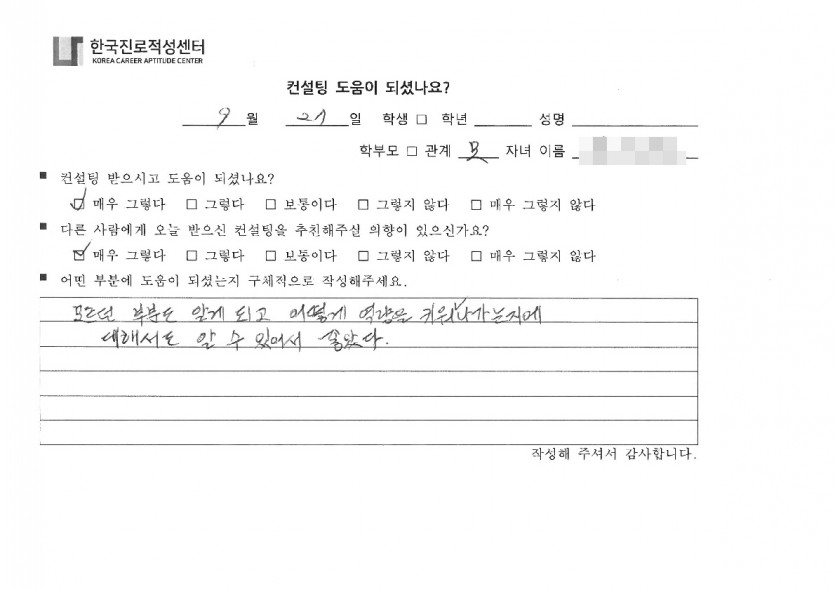 한국진로적성센터
KOREA CAREER APTITUDE CENTER
컨설팅 도움이 되셨나요?
9 월 27 일 학생 □ 학년 성명
학부모 □ 관계 모 자녀 이름
■ 컨설팅 받으시고 도움이 되셨나요?
☑ 매우 그렇다 □ 그렇다 □ 보통이다 □ 그렇지 않다 □ 매우 그렇지 않다
■ 다른 사람에게 오늘 받으신 컨설팅을 추천해주실 의향이 있으신가요?
☑ 매우 그렇다 □ 그렇다 □ 보통이다 □ 그렇지 않다 □ 매우 그렇지 않다
■ 어떤 부분에 도움이 되셨는지 구체적으로 작성해주세요.
모르던 부분도 알게 되고 어떻게 역량을 키워나가는지에
대해서도 알 수 있어서 좋았다.
작성해 주셔서 감사합니다.